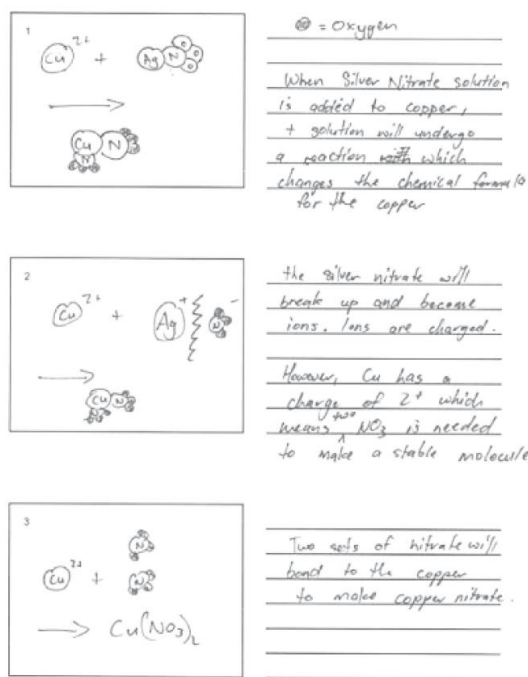 1
Cu 2+ + Ag N O O O
Cu N N
= Oxygen
When Silver Nitrate solution
is added to copper,
+ solution will undergo
a reaction which
changes the chemical formula
for the copper
2
Cu 2+ + Ag + N -
Cu N
the silver nitrate will
break up and become
ions. Ions are charged.
However, Cu has a
charge of 2+ which
means two NO3 is needed
to make a stable molecule
3
N
Cu 2+ + N
Cu(NO3)2
Two sets of nitrate will
bond to the copper
to make copper nitrate.